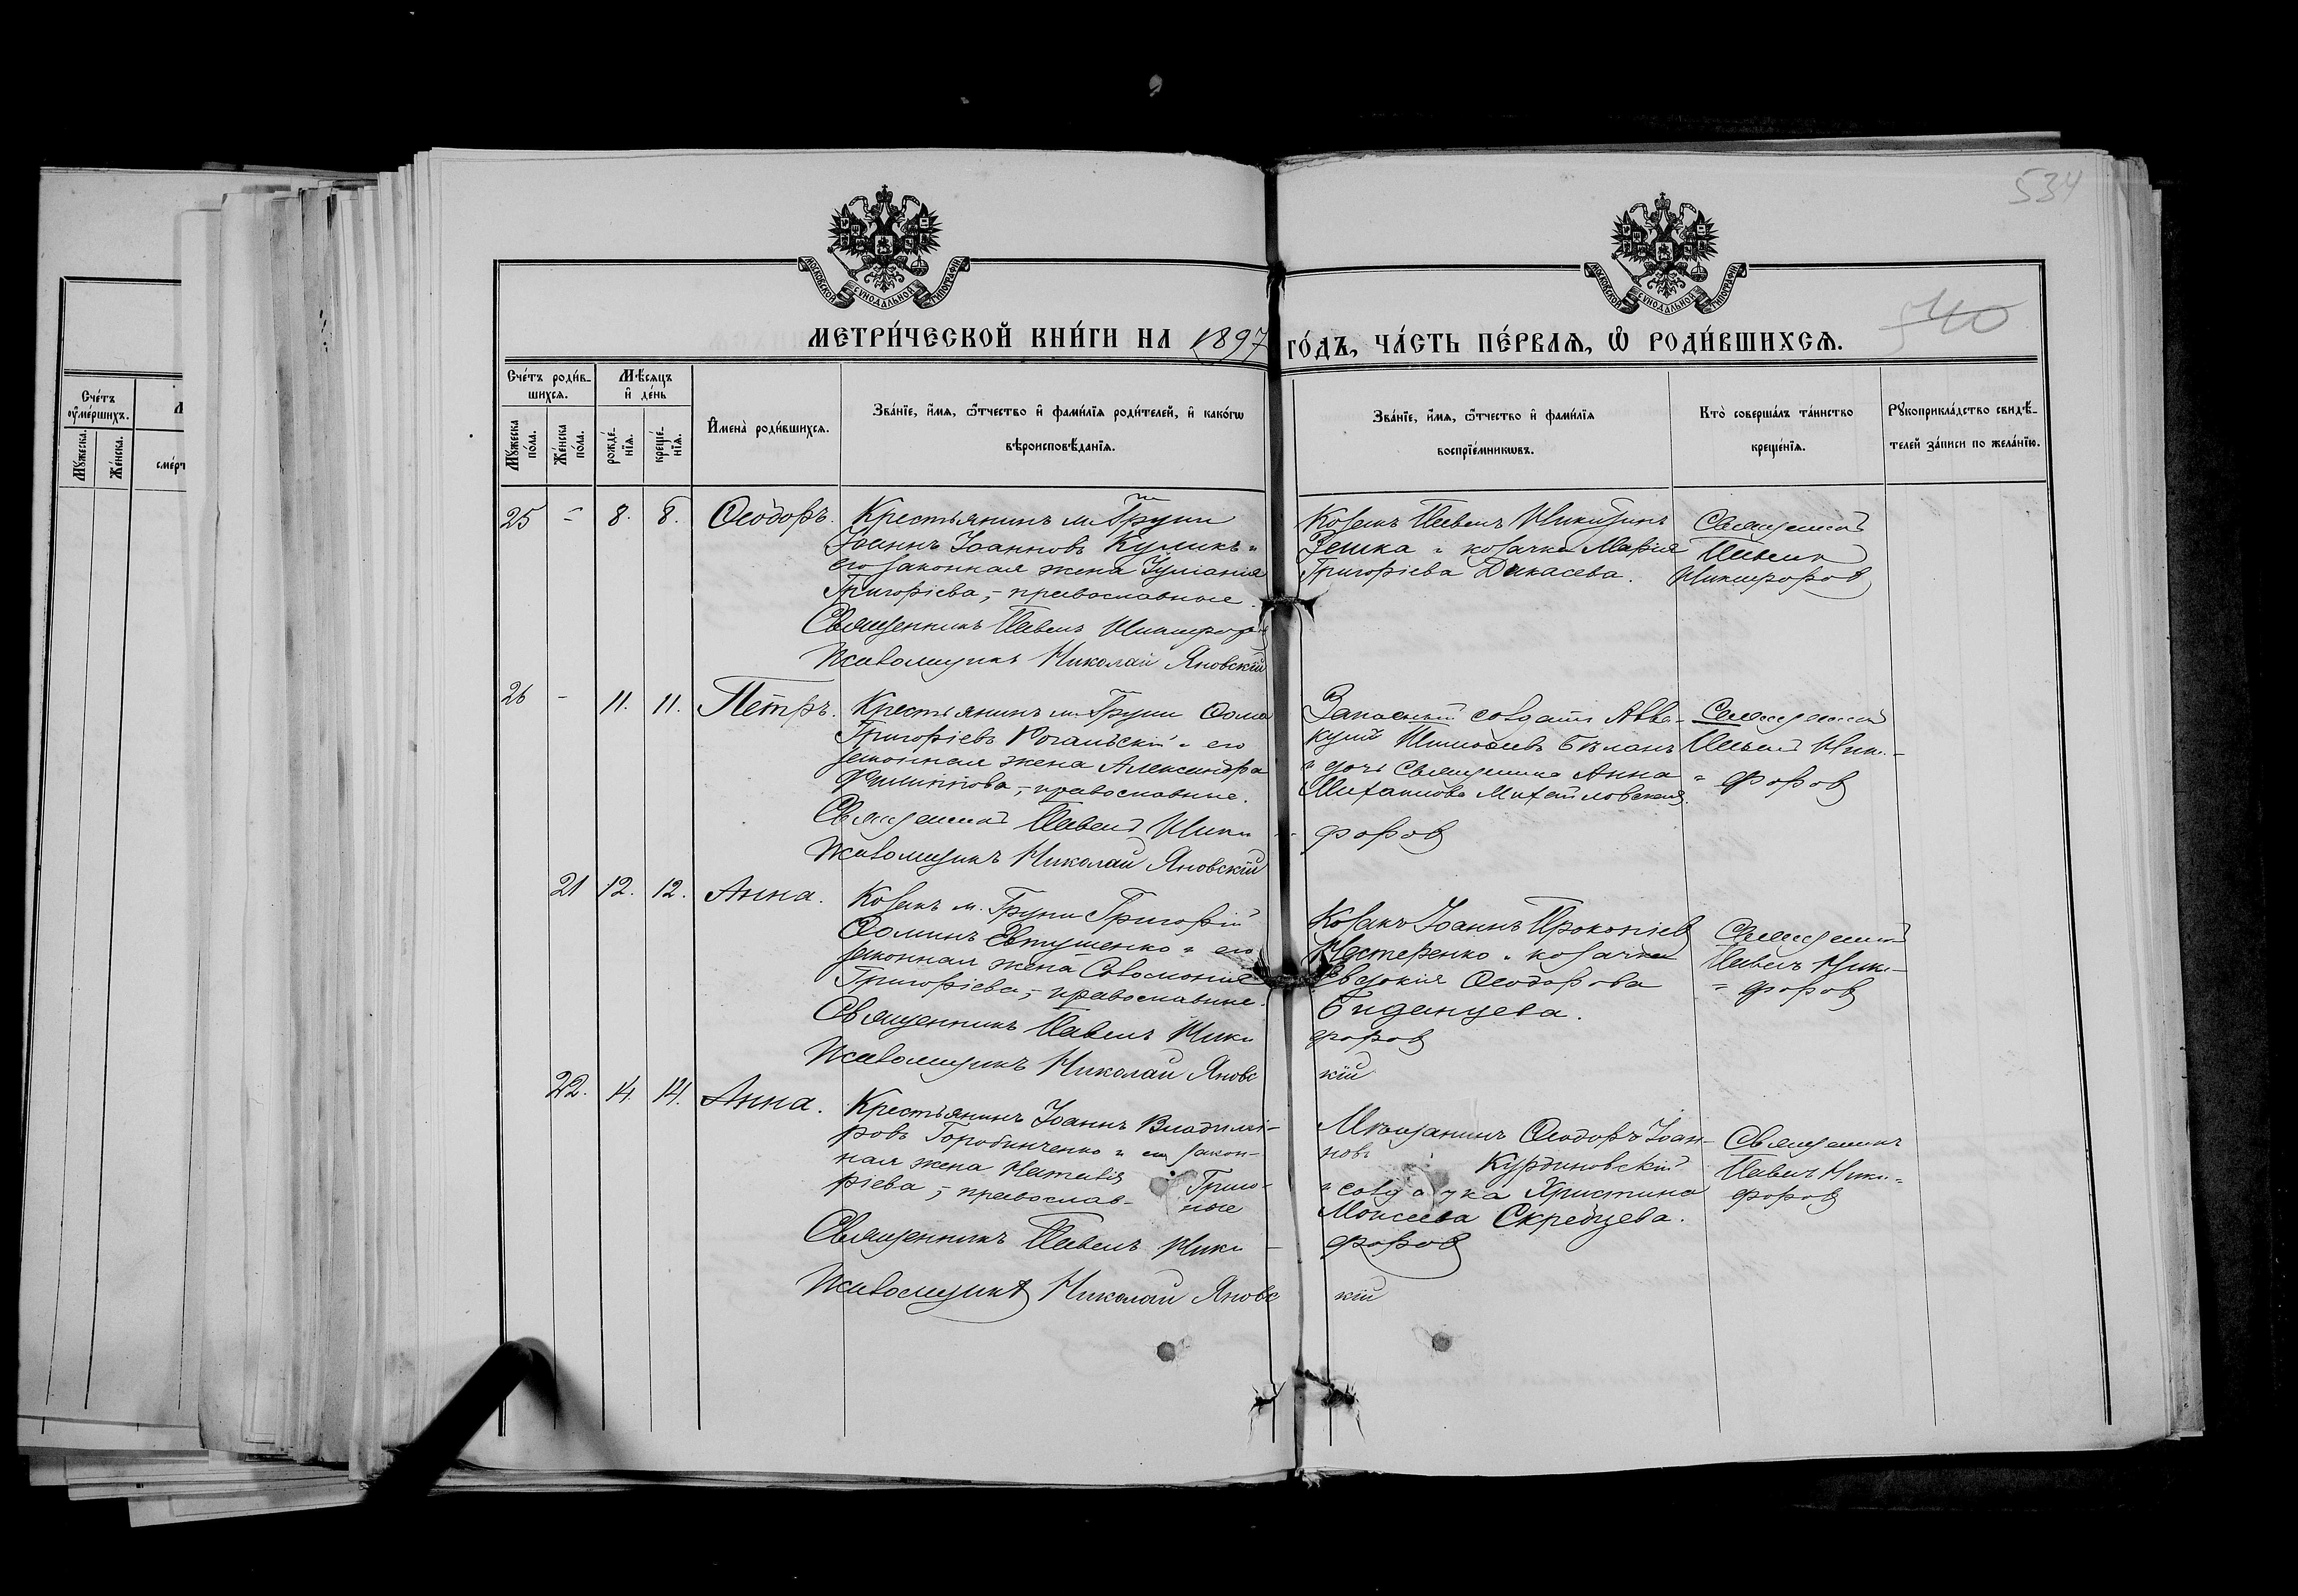 534
540
МОСКОВСКОЙ СѴНОДАЛЬНОЙ ТИПОГРАФІИ
МОСКОВСКОЙ СѴНОДАЛЬНОЙ ТИПОГРАФІИ
МЕТРИ́ЧЕСКОЙ КНИ́ГИ НА 1897 ГО́ДЪ, ЧА́СТЬ ПЕ́РВАѦ, Ѡ҆ РОДИ́ВШИХСѦ.
Сче́тъ роди́в-
шихсѧ.
Мꙋ́жеска по́ла.
Же́нска по́ла.
Мѣ́сѧцъ
и҆ де́нь
рожде́-
нїѧ.
креще́-
нїѧ.
И҆мена̀ роди́вшихсѧ.
Зва́нїе, и҆́мѧ, ѻ҆́тчество и҆ фами́лїѧ роди́телей, и҆ како́гѡ
вѣроисповѣ́данїѧ.
Зва́нїе, и҆́мѧ, ѻ҆́тчество и҆ фами́лїѧ
воспрїе́мникѡвъ.
Кто̀ соверша́лъ та́инство
креще́нїѧ.
Рꙋкоприкла́дство свидѣ́-
телей за́писи по жела́нїю.
Сче́тъ
ѹ҆ме́ршихъ.
Мꙋ́жеска.
Же́нска.
25 - 8. 8. Ѳеодоръ.
Крестьянинъ м. Груни
Іоаннъ Іоанновъ Куликъ и
его законная жена Іуліанія
Григоріева, - православные.
Священникъ Павелъ Никифоровъ
Псаломщикъ Николай Яновскій
Козакъ Павелъ Никитинъ
Зешка и козачка Марія
Григоріева Дикасева.
Священникъ
Павелъ
Никифоровъ
26 - 11. 11. Петръ.
Крестьянинъ м. Груни Ѳома
Григоріевъ Рогальскій и его
законная жена Александра
Филиппова, - православные.
Священникъ Павелъ Ники-
Псаломщикъ Николай Яновскій
Запасный солдатъ Авва-
кумъ Тимоѳеевъ Бѣланъ
и дочь Священника Анна
Михаилова Михайловская.
форовъ
Священникъ
Павелъ Ники-
форовъ
21 12. 12. Анна.
Козакъ м. Груни Григорій
Ѳоминъ Евтушенко и его
законная жена Соломонія
Григоріева, - православные.
Священникъ Павелъ Ники
Псаломщикъ Николай Яновс
Козакъ Іоаннъ Прокопіевъ
Нестеренко и козачка
Евдокія Ѳеодорова
форовъ
кій
Священникъ
Павелъ Ники-
форовъ
22. 14. 14. Анна.
Крестьянинъ Іоаннъ Владимі-
ровъ Горобинченко и его закон-
ная жена Наталія Григо-
ріева, - православ- ные
Священникъ Павелъ Ники -
Псаломщикъ Николай Яновс
Мѣщанинъ Ѳеодоръ Іоан-
новъ Курдиновскій
и солдатка Христина
Моисеева Скребцева.
форовъ
кій
Священникъ
Павелъ Ники-
форовъ